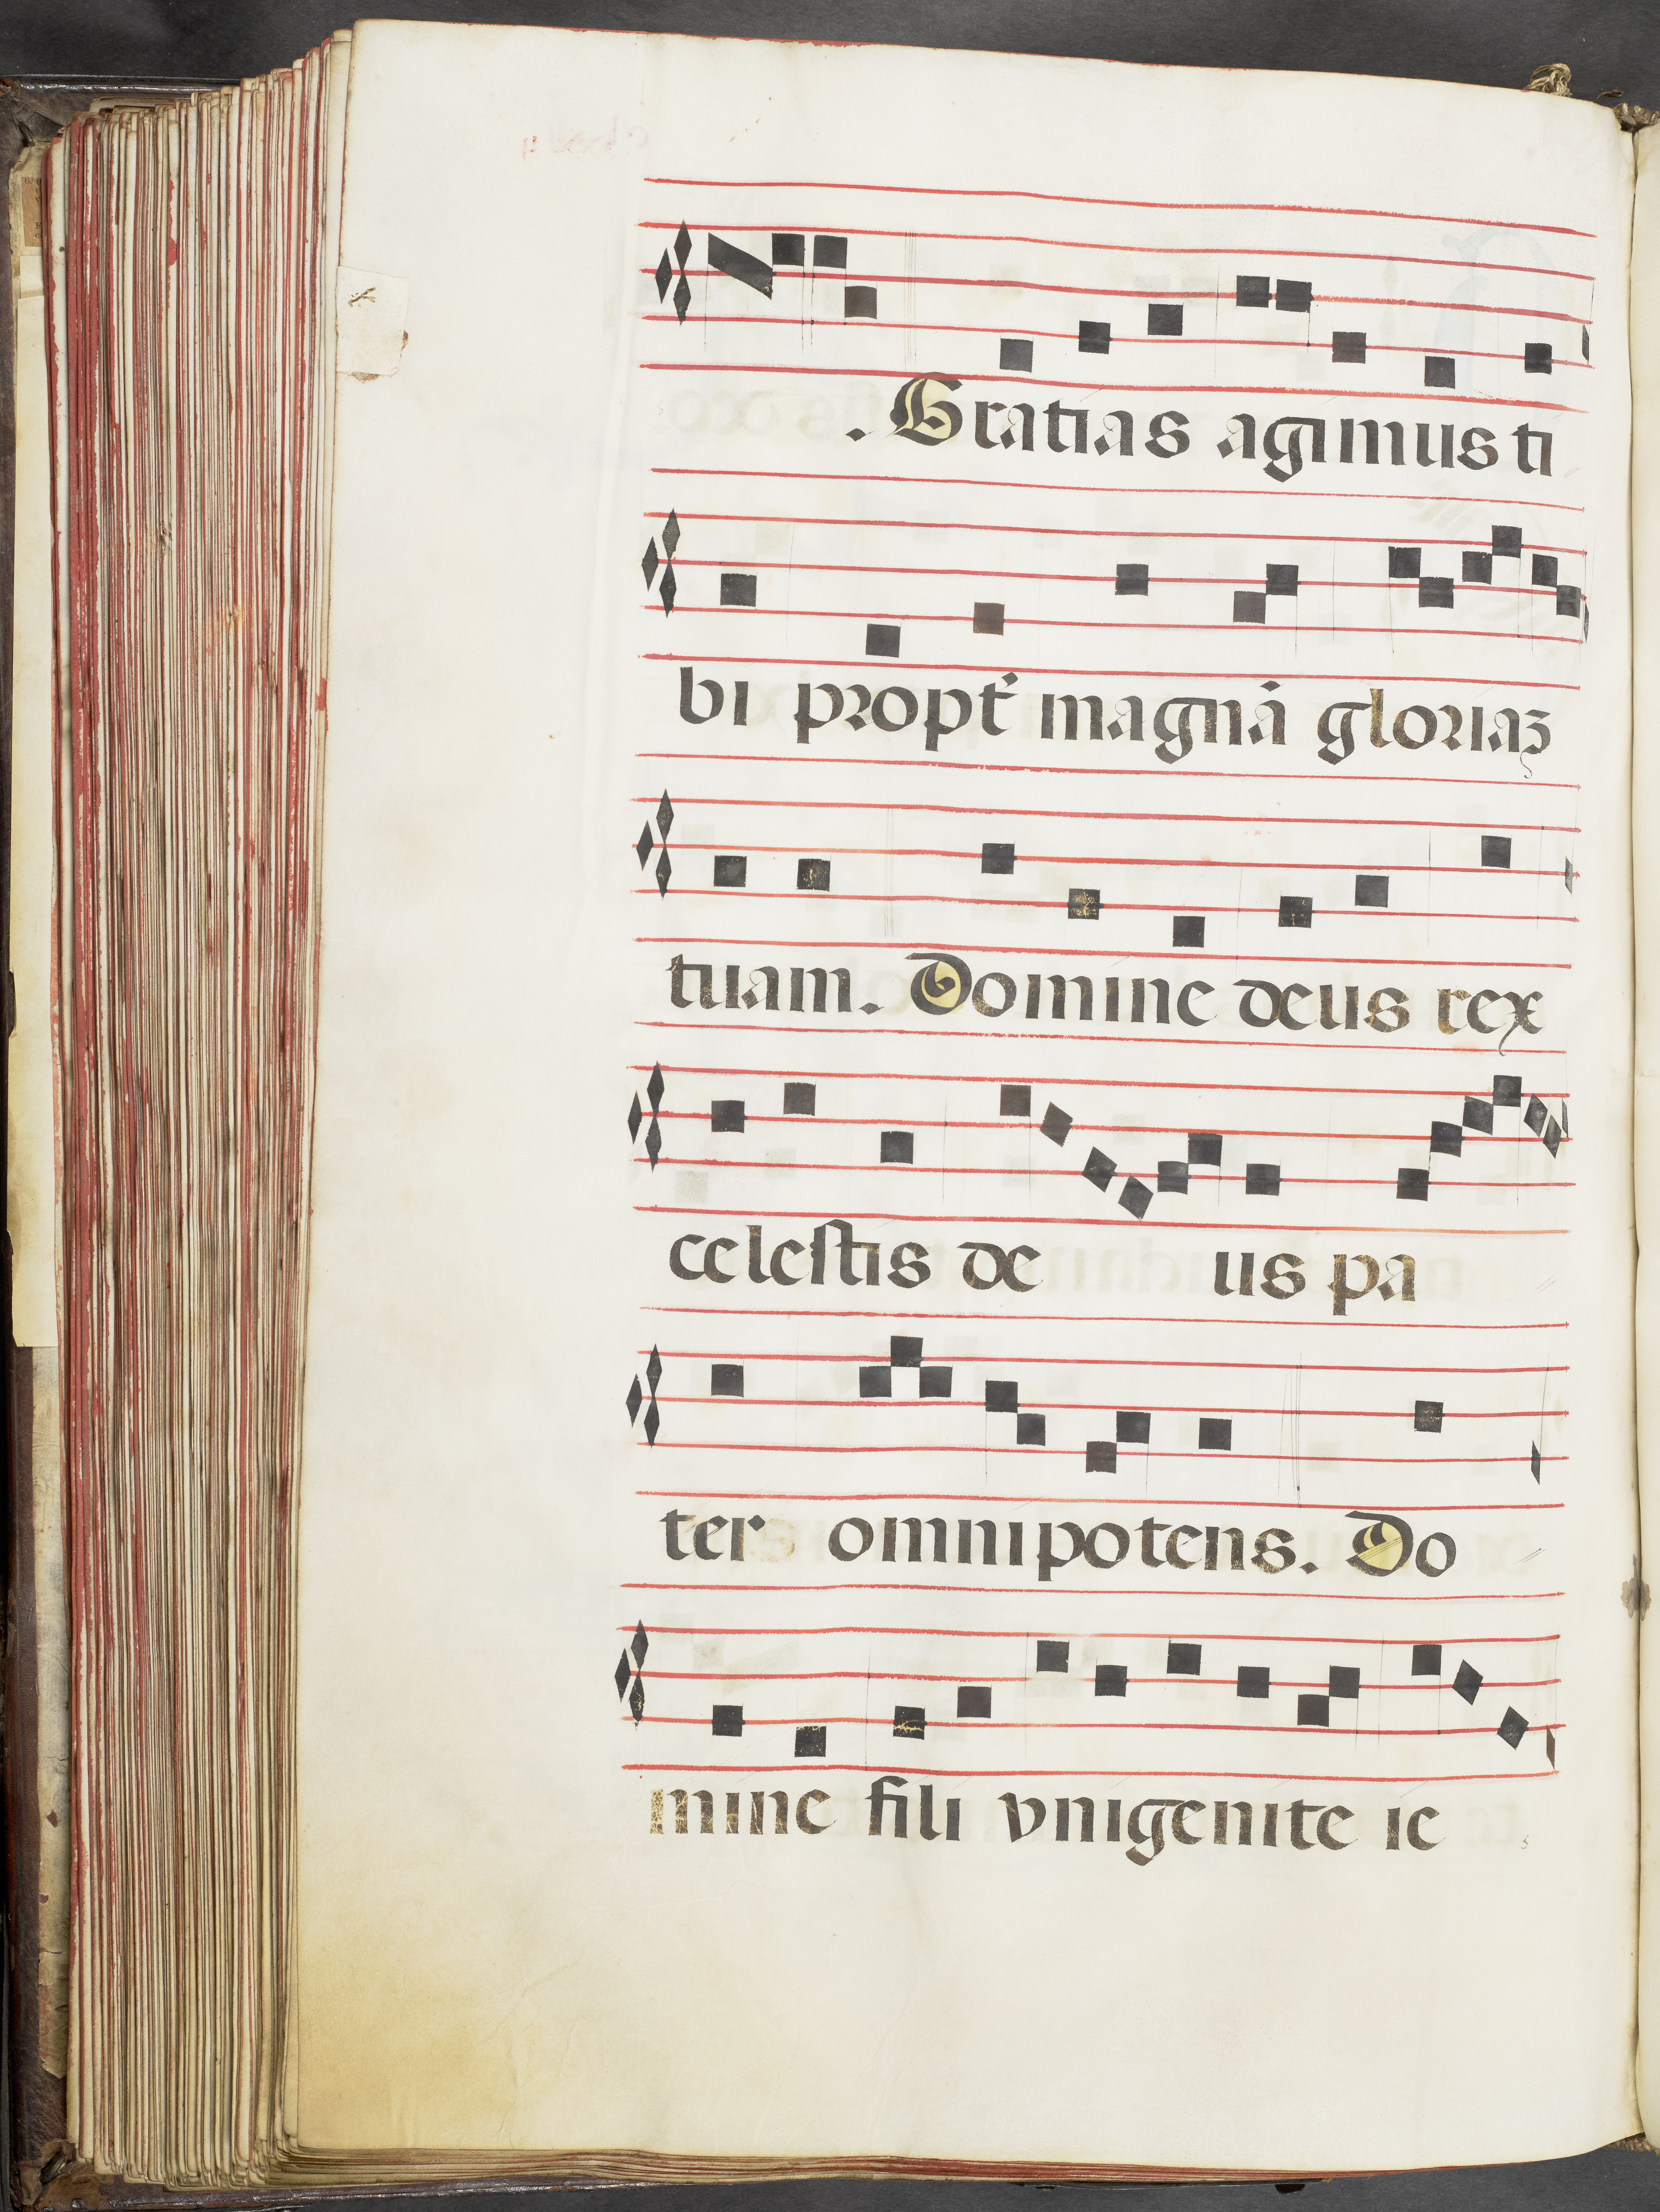 . Gratias agimus ti
bi propt̓ magnā gloriaꝫ
tuam. Domine deus rex
celestis de us pa
ter omnipotens. Do
mine fili vnigenite ie